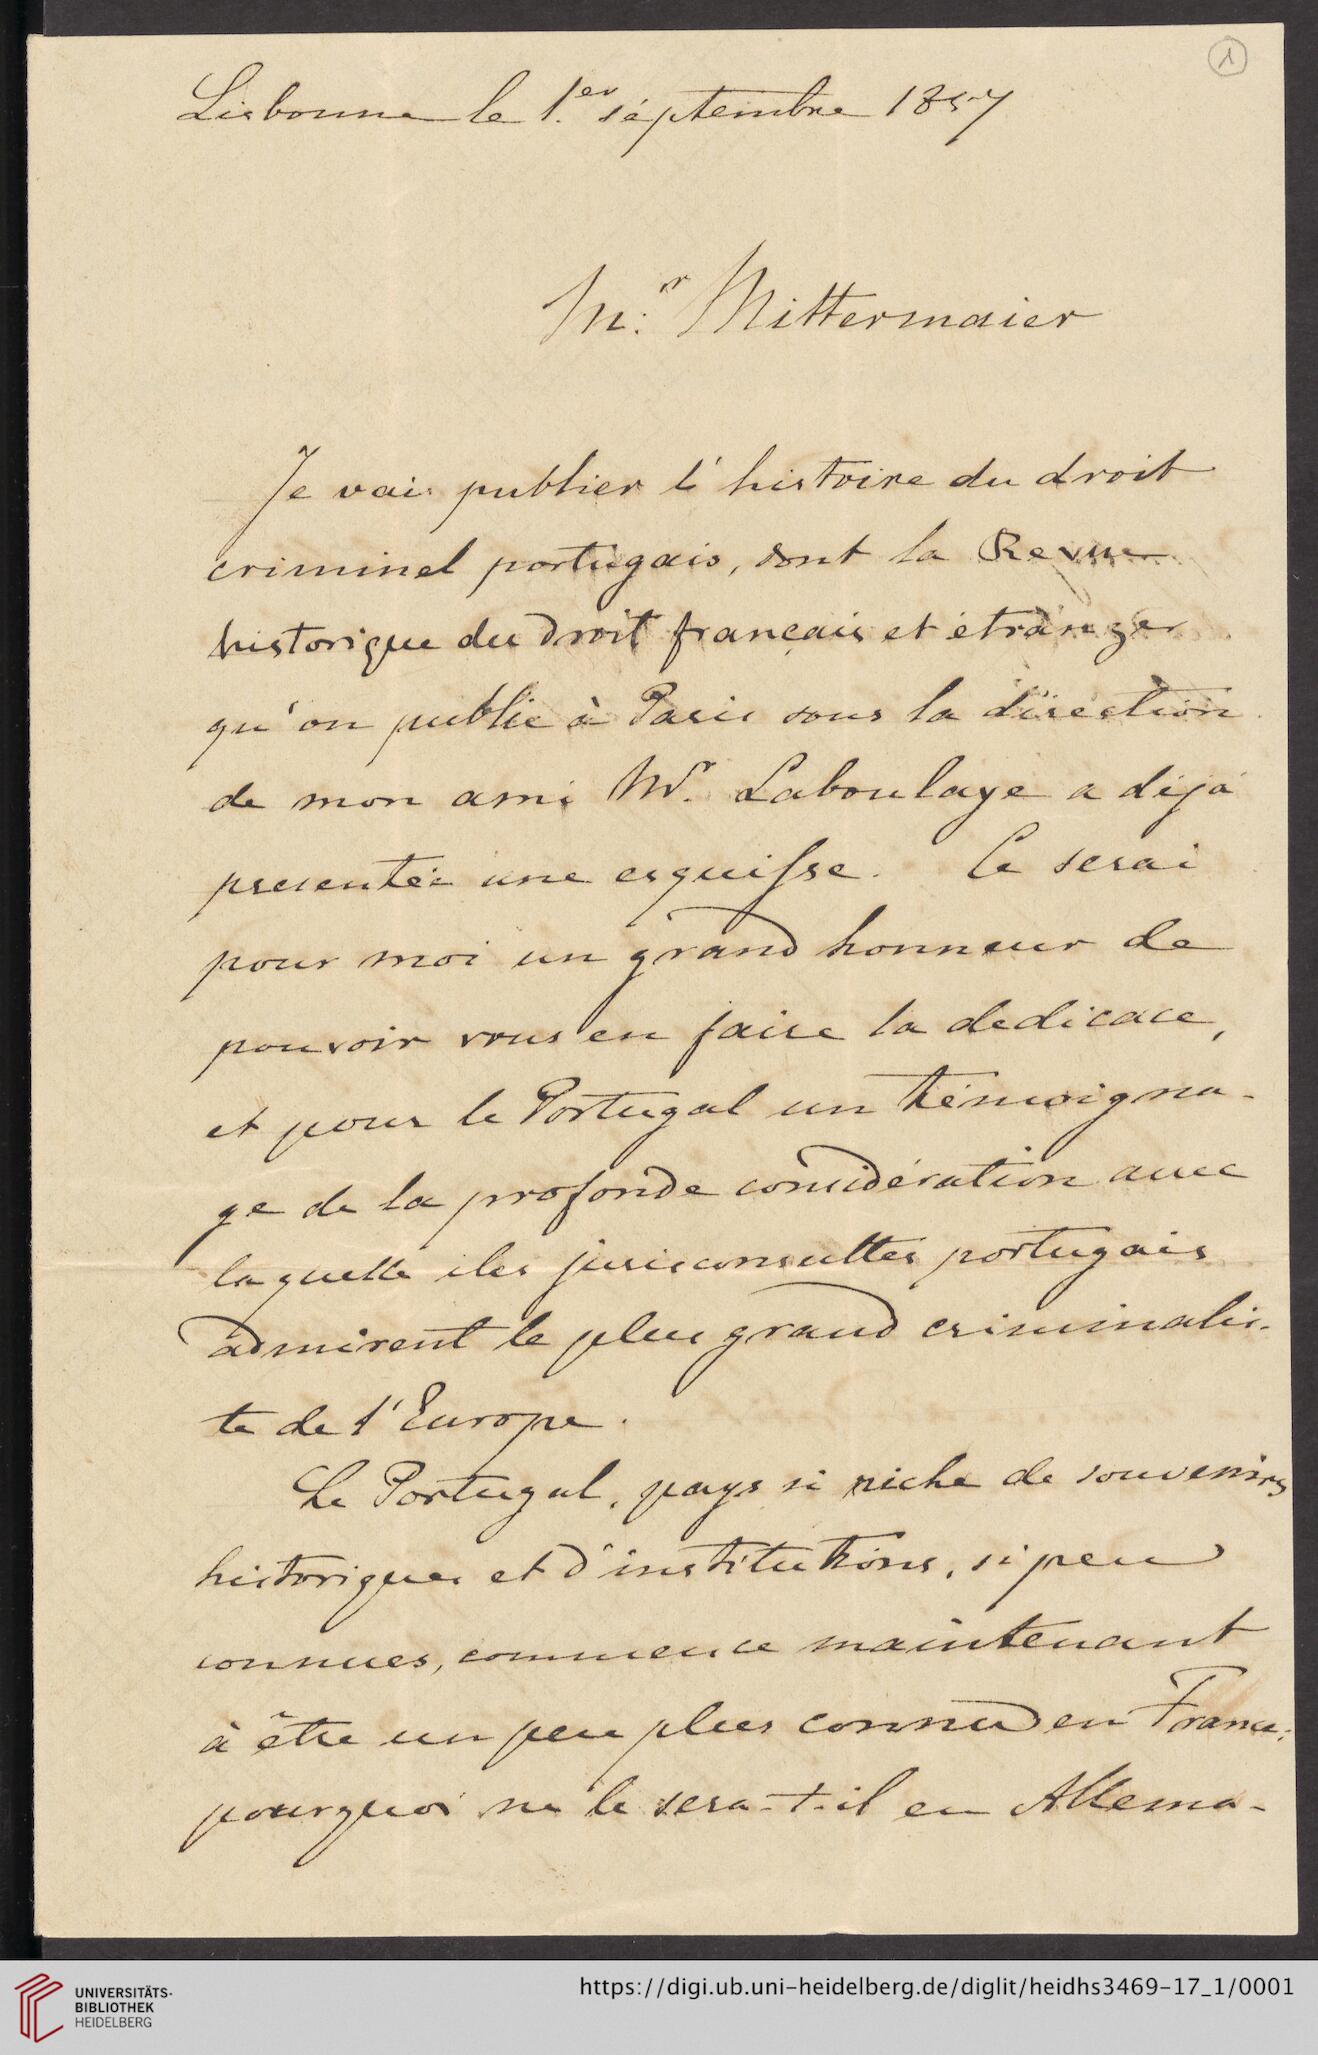 1
Lisbonne le 1.er séptembre 1857
M.r Mittermaier
Je vais publier l'histoire du droit
criminel portugais, dont la Revue
historique du droit français et étranger
qu'on publie à Paris sous la direction
de mon ami Mr. Laboulaye a déjá
presentée une esquisse. Ce serai
pour moi un grand honneur de
pouvoir vous en faire la dedicace,
et pour le Portugal un témoigna-
ge de la profonde considération avec
laquelle les jurisconsultes portugais
admirent le plus grand criminalis-
te de l'Europe.
Le Portugal, pays si riche de souvenirs
historiques et d'institutions, si peu
connues, commence maintenant
à être un peu plus connu en France;
pourquoi ne le sera-t-il en Allema-
UNIVERSITÄTS-
BIBLIOTHEK
HEIDELBERG
https://digi.ub.uni-heidelberg.de/diglit/heidhs3469-17_1/0001